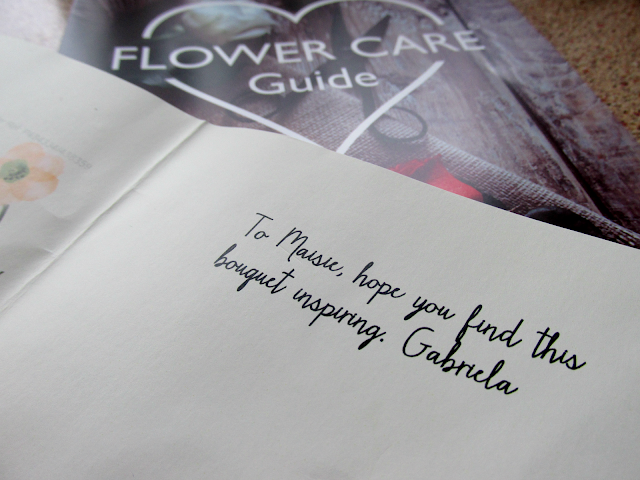 FLOWER CARE
Guide
To Maisie, hope you find this
bouquet inspiring. Gabriela